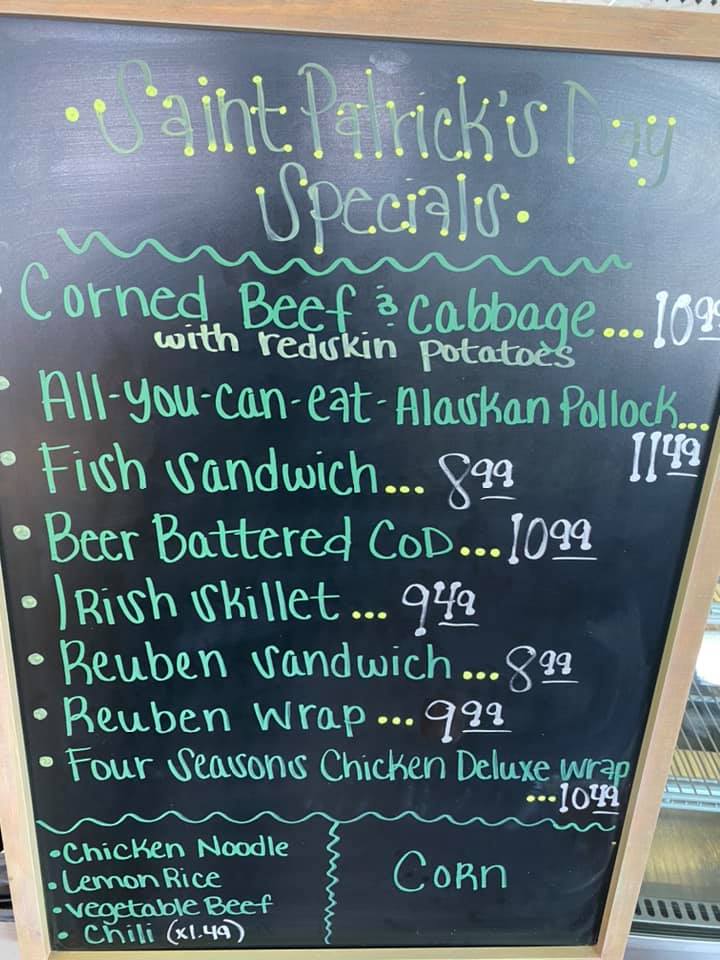 • Saint Patrick's Day
Specials •
• Corned Beef & Cabbage... 10 99
with redskin potatoes
• All-you-can-eat-Alaskan Pollock...
11 49
• Fish Sandwich... 8 99
• Beer Battered Cod... 10 99
• Irish Skillet... 9 49
• Reuben Sandwich... 8 99
• Reuben Wrap... 9 99
• Four Seasons Chicken Deluxe Wrap
...10 49
• Chicken Noodle
• Lemon Rice
• Vegetable Beef
• Chili (x1.49)
Corn